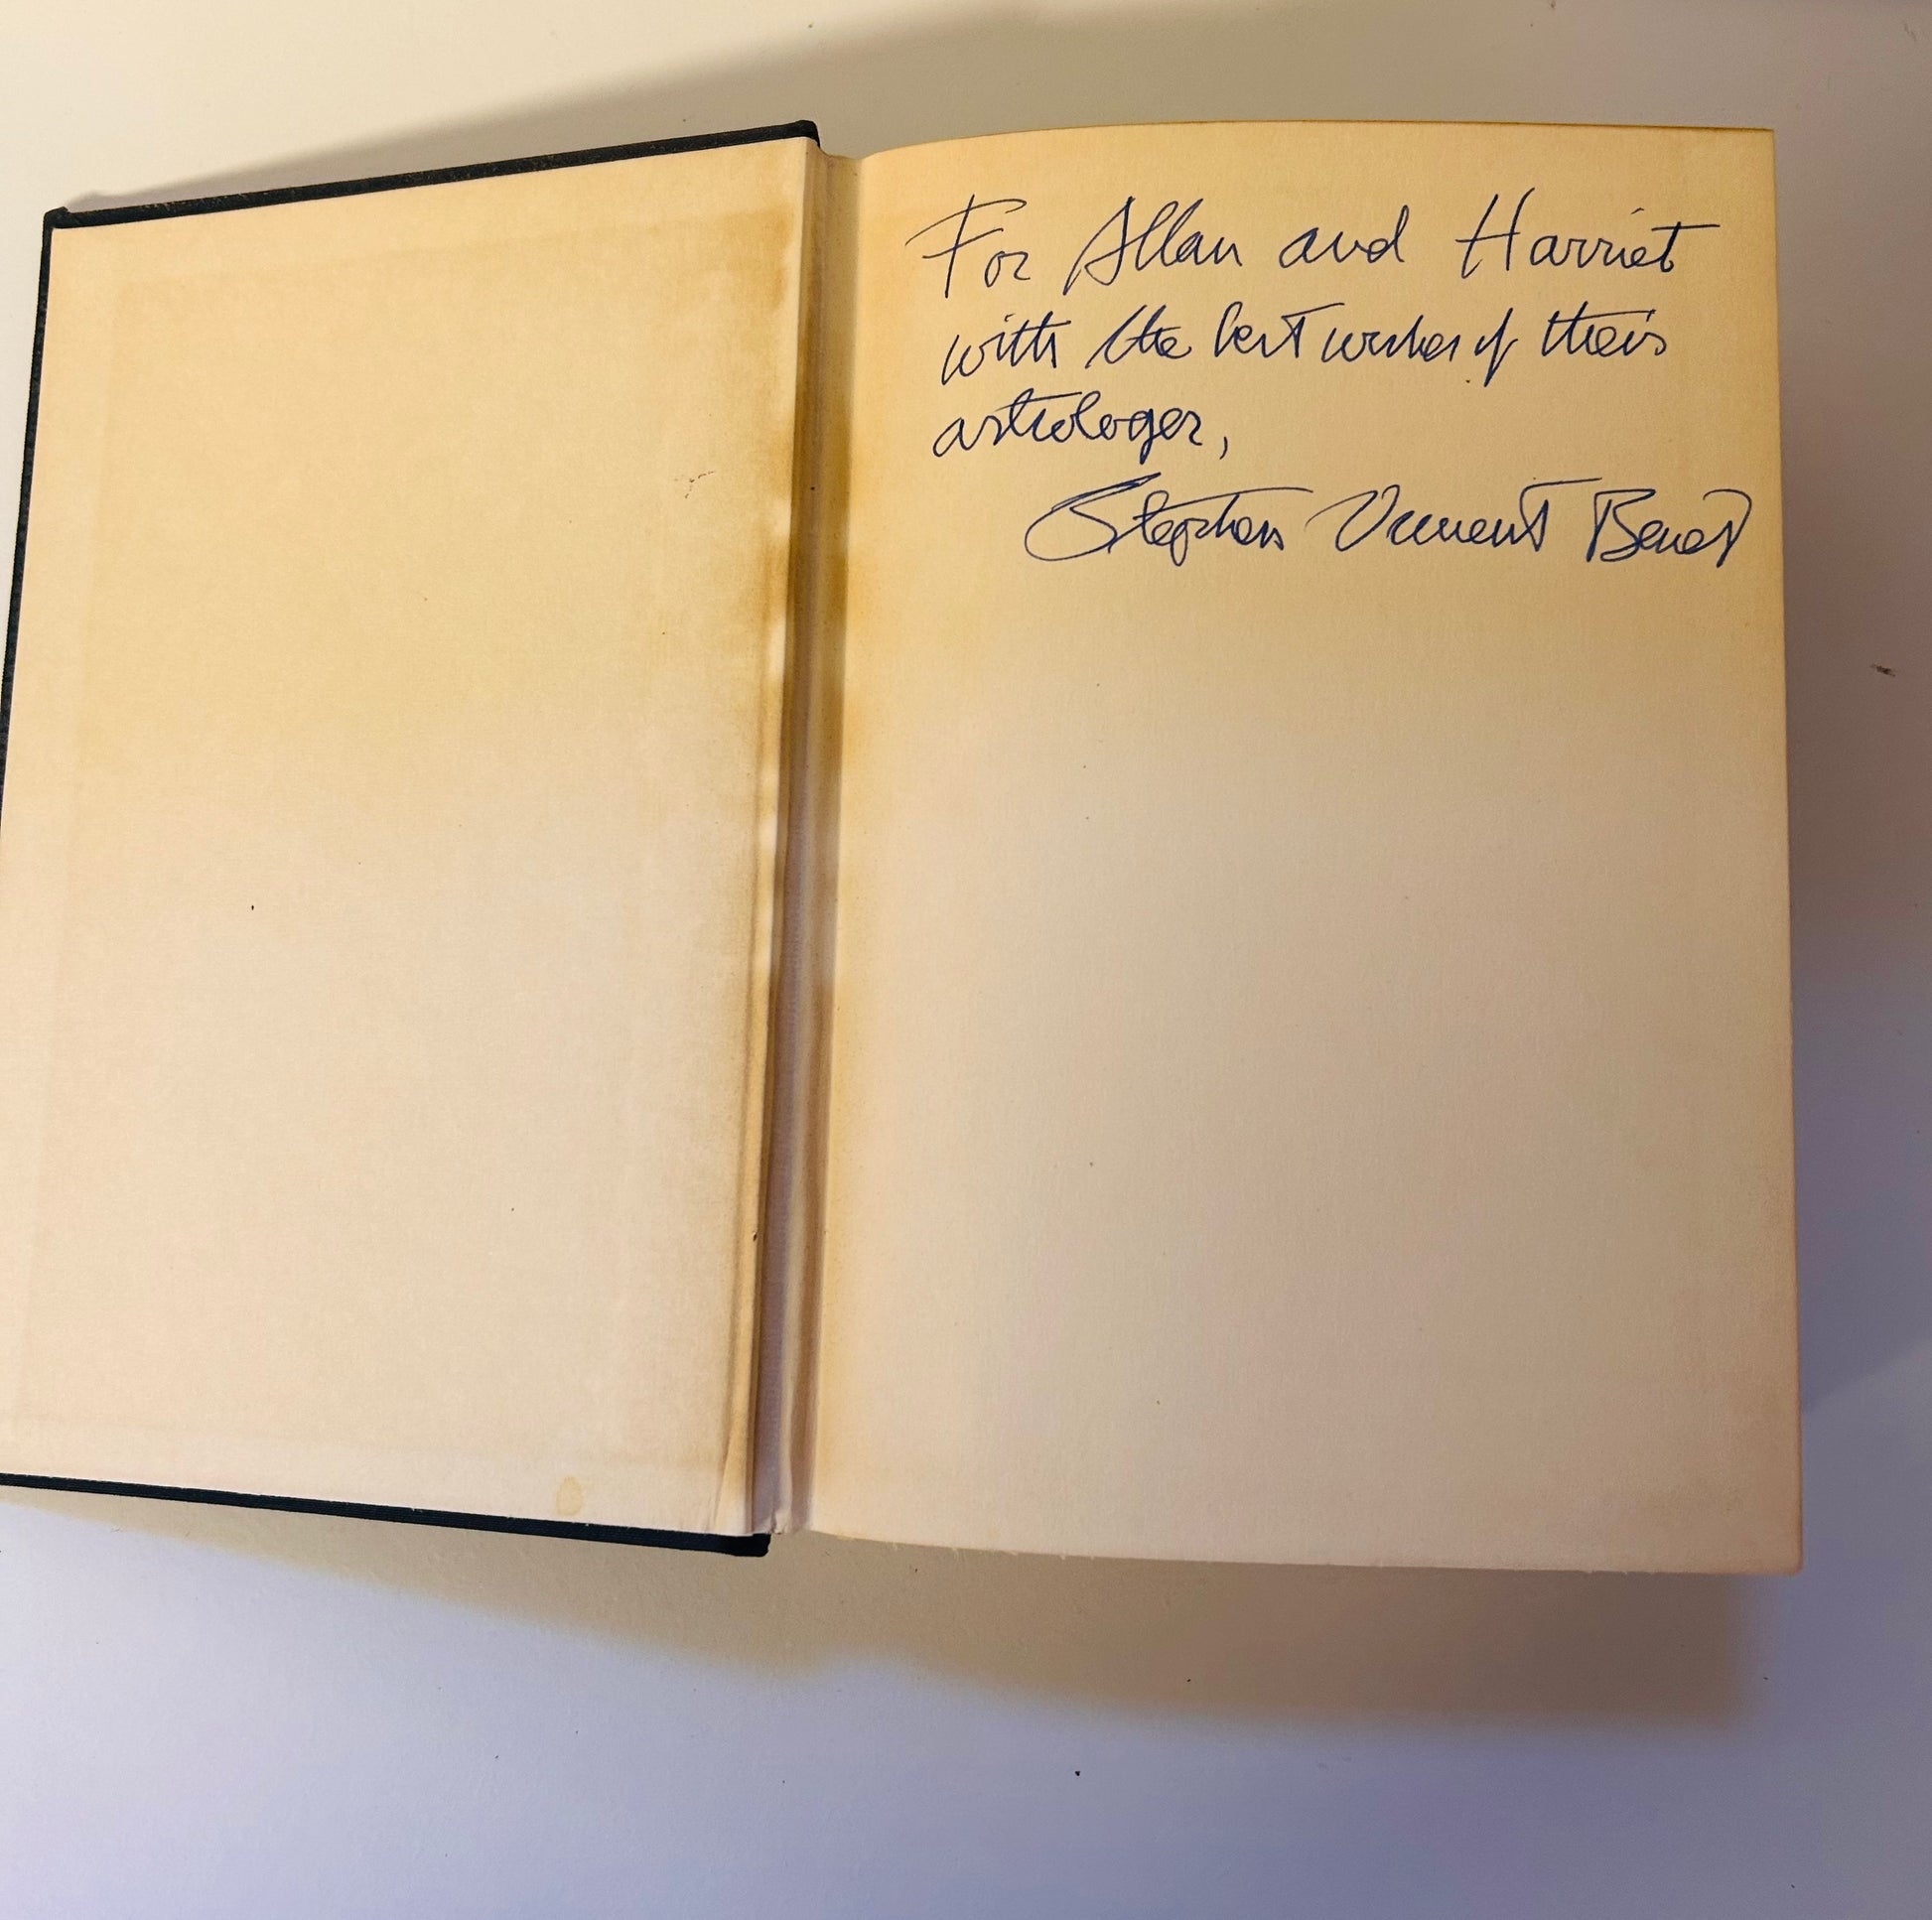 For Allan and Harriet
with the best wishes of their
astrologer,
Stephen Vincent Benet